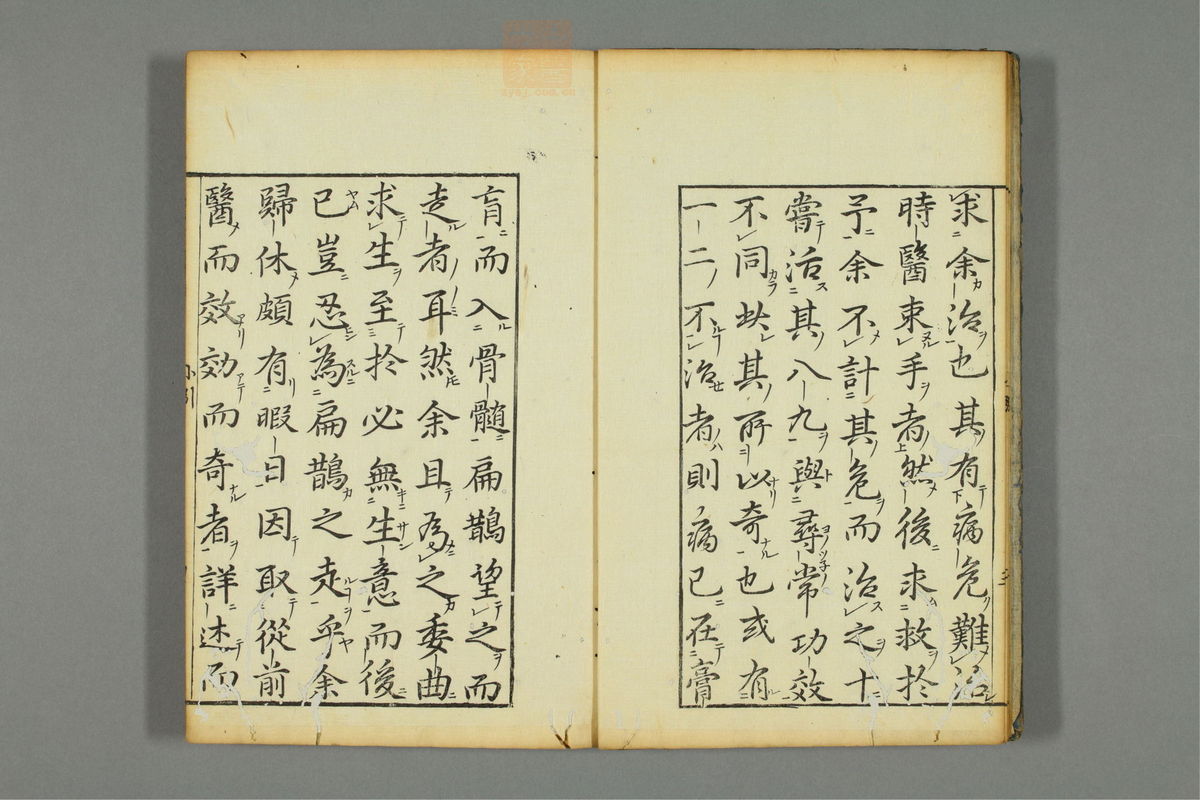 求余治也其有病危難治
時醫束手者然後求救於
予余不計其危而治之十
嘗活其八九與尋常功效
不同此其所以奇也或有
一二不治者則病已在膏
肓而入骨髓扁鵲望之而
走者耳然余且為之委曲
求生至於必無生意而後
已豈忍為扁鵲之走乎余
歸休頗有暇日因取從前
醫而效効而奇者詳述而
小引